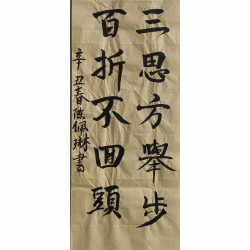 三思方舉步
百折不回頭
辛丑春陳佩琳書